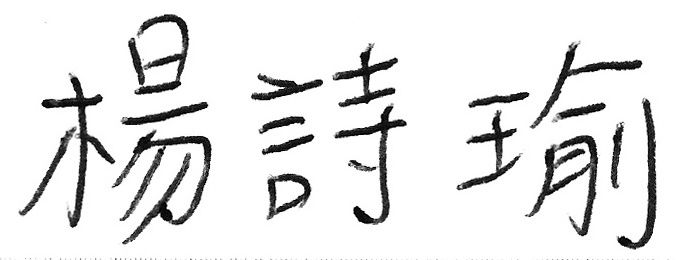 楊詩瑜